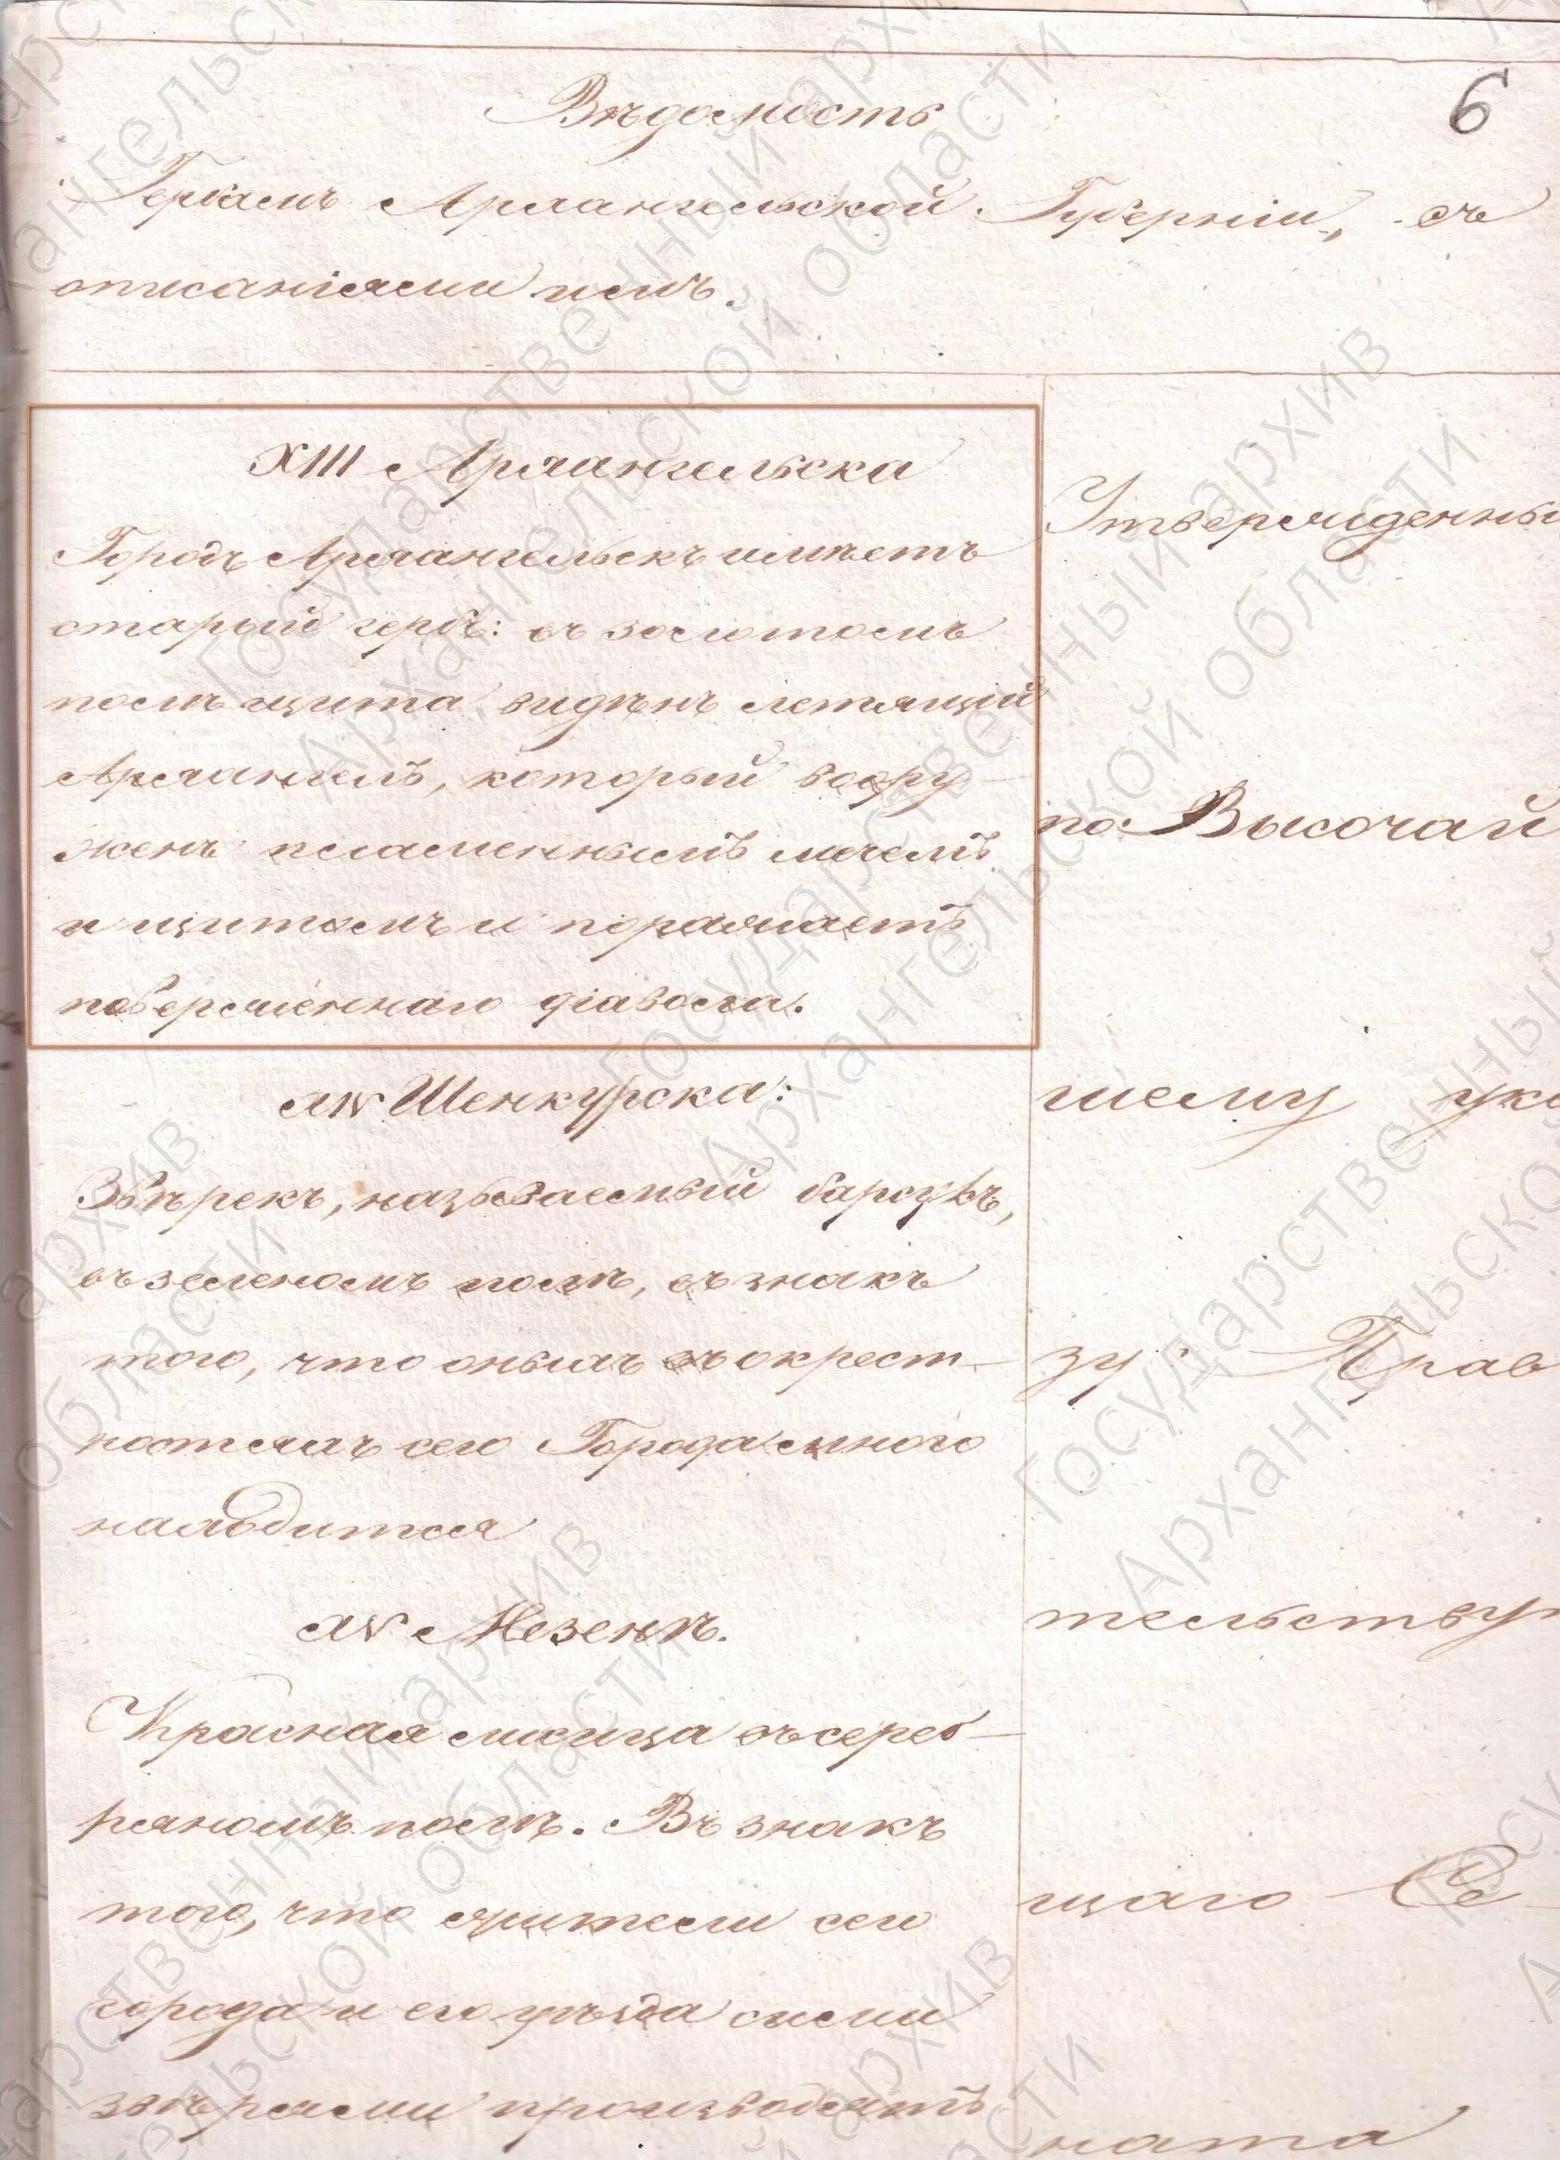 Вѣдомость
6
Гербамъ Архангельской Губерніи, съ
описаніями ихъ.
XIII Архангельска
Городъ Архангельскъ имѣетъ
старый гербъ: въ золотомъ
полѣ щита видѣнъ летящій
Архангелъ, который воору-
женъ пламеннымъ мечемъ
и щитомъ и поражаетъ
поверженнаго діавола.
XIV Шенкурска:
Звѣрекъ, называемый барсукъ,
въ зеленомъ полѣ, въ знакъ
того, что оныхъ въ окрест-
ностяхъ сего Города много
находится
XV Мезенѣ.
Красная лисица въ сереб-
ряномъ полѣ. Въ знакъ
того, что жители сего
города и его уѣзда сими
звѣрями производятъ
Утвержденны
по Высочай
шему ука
зу Прав
тельству
щаго Се-
ната
Государственный архив
Архангельской области